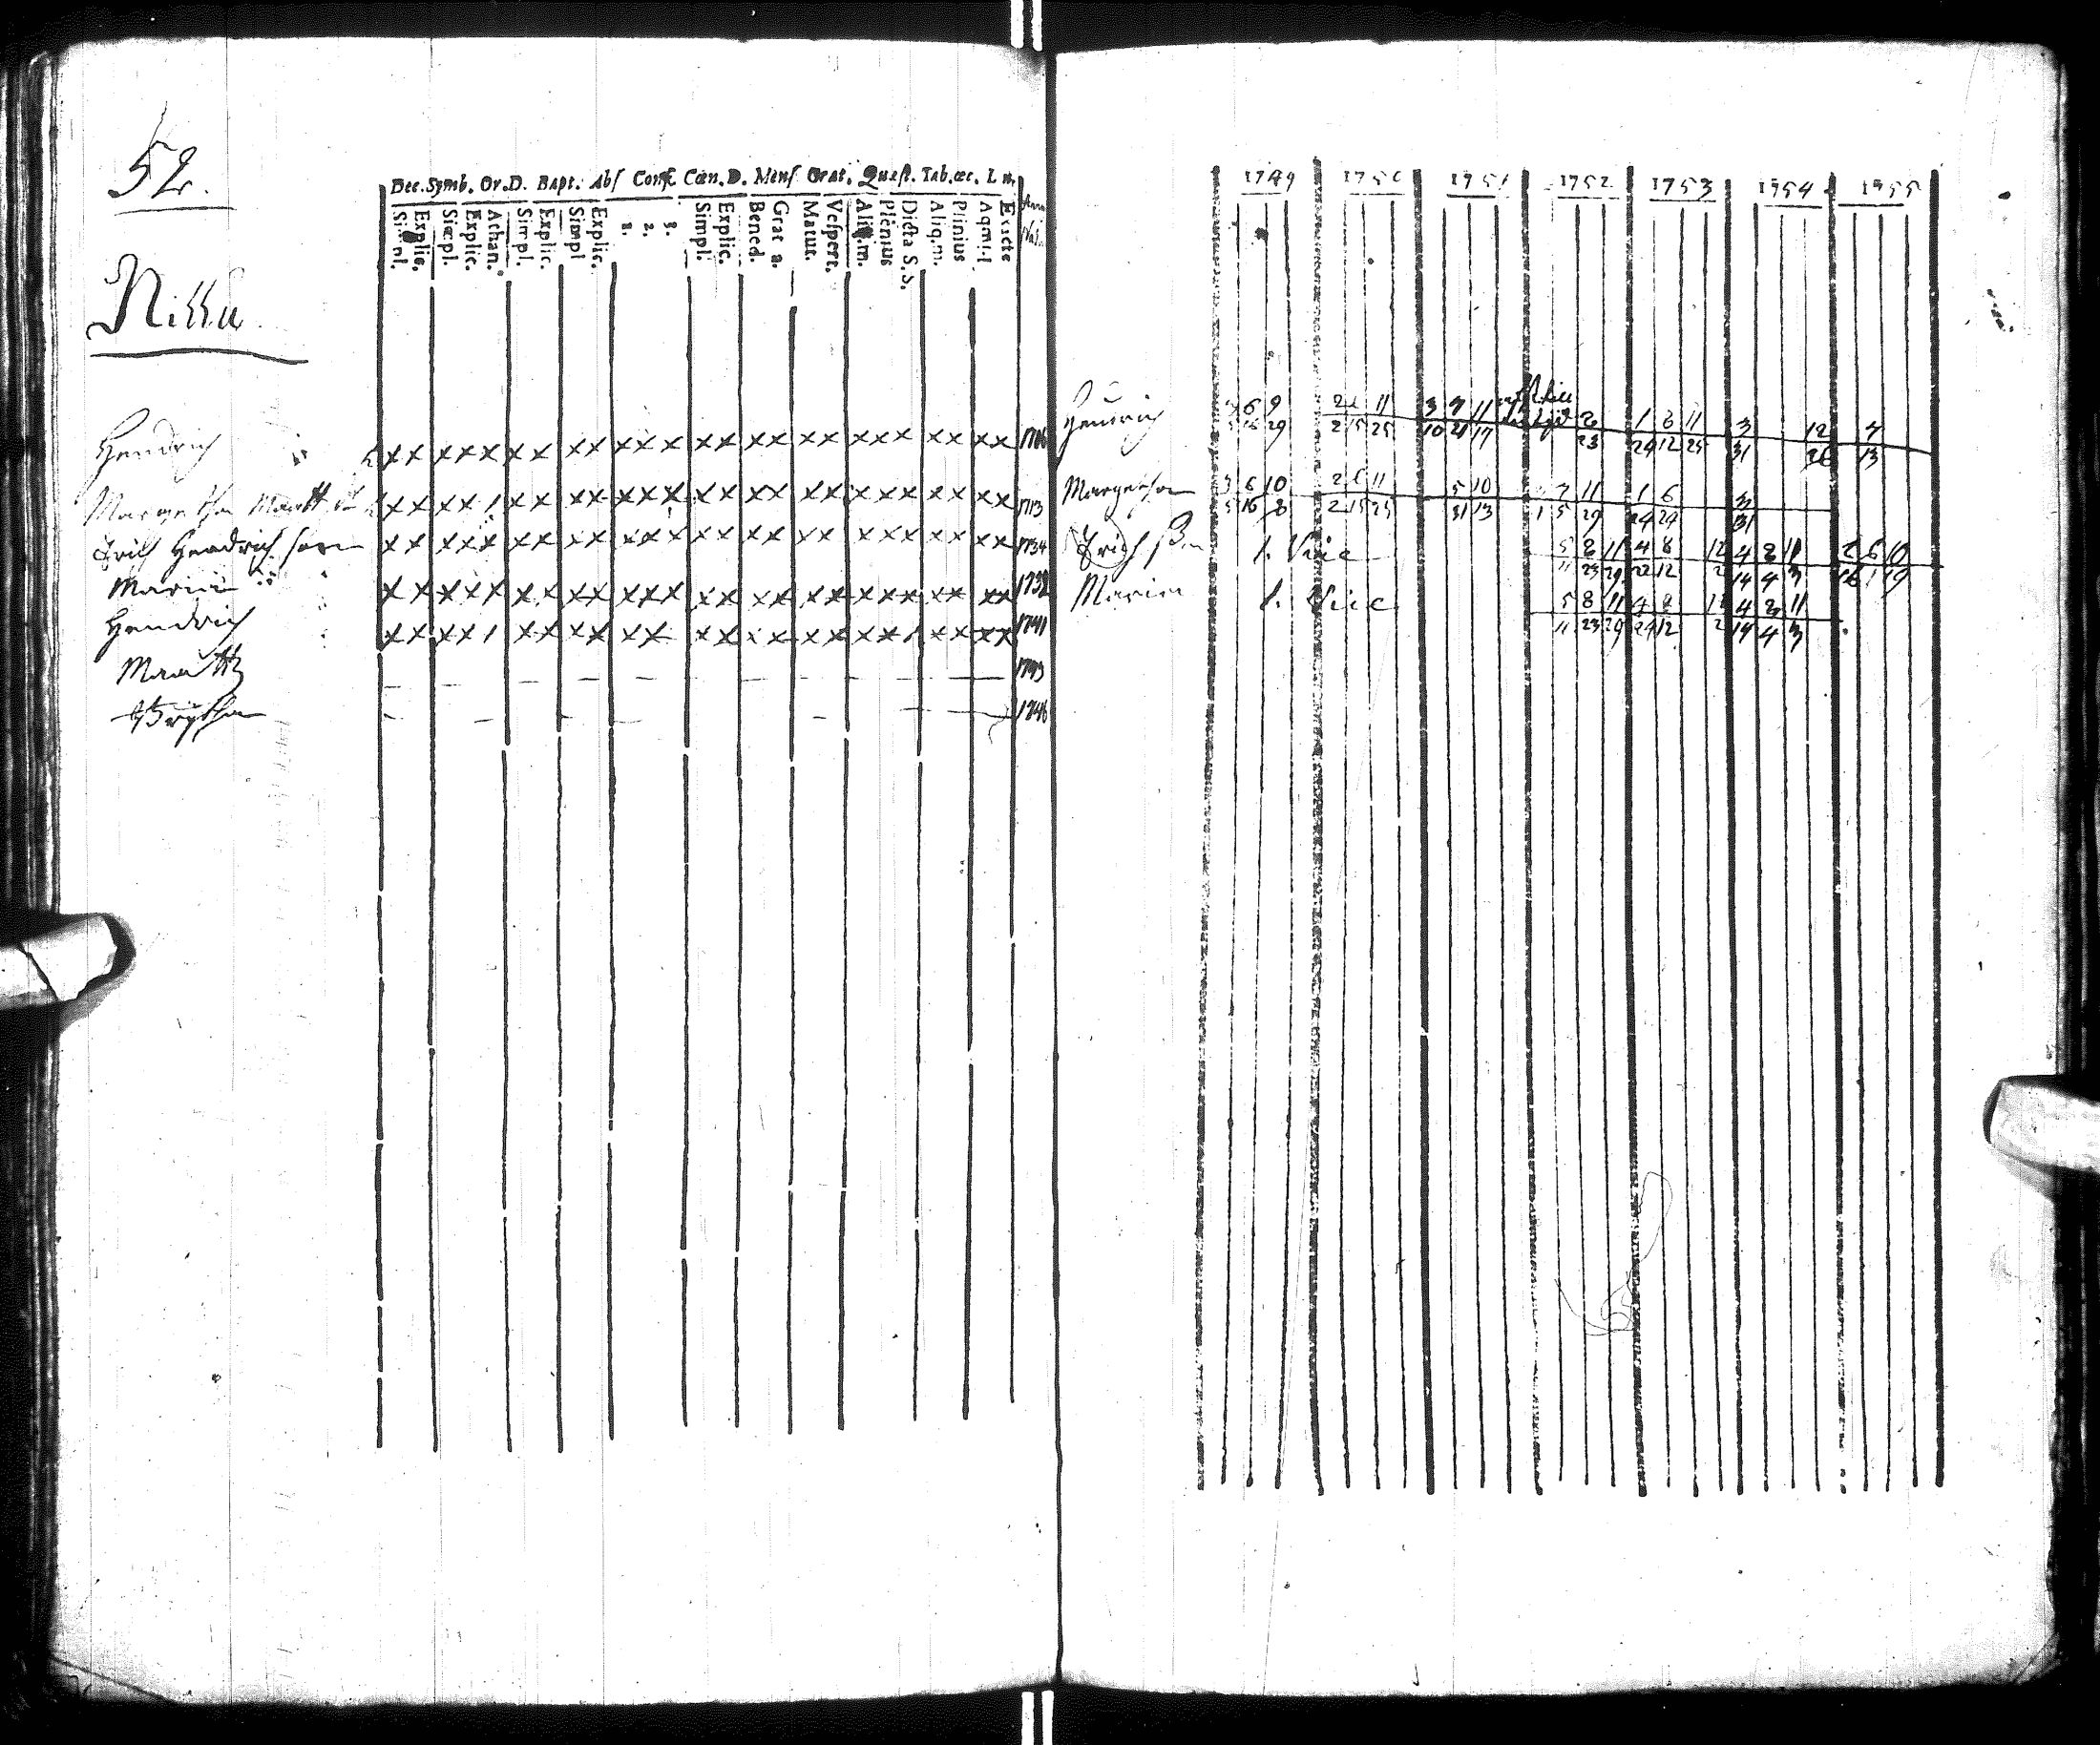 52.
Dec. Symb. Or. D. Bapt. Abſ Conf. Cœn. D. Menſ Orat. Quæſt. Tab. œc.
Simpl. Explic. Simpl. Explic. Athan. Simpl. Explic. Simpl Explic. 1. 2. 3. Simpl. Explic. Bened. Grat a. Matut. Veſpert. Aliq.m. Plēnius Dicta S.S. Aliq.m. Plinius Exacte
Hendrich x x x x x x x x x x x x x x x x x x x x x x x x 1706
Margetha x x x x 1 x x x x x x x x x x x x x x x x x x x x 1713
Erich Hendrich son x x x x x x x x x x x x x x x x x x x x x x x x 1734
Maria x x x x x x x x x x x x x x x x x x x x x x x x 1732
Hendrich x x x x 1 x x x x x x x x x x x x x x 1 x x x x 1741
Matts 1743
1746
1749 1750 1751 1752 1753 1754 1755
Hendrich 6 9 11 3 7 11 8 1 8 11 3 12 4
16 29 2 15 25 10 21 17 23 24 12 25 31 26 13
Margetha 3 6 10 2 6 11 5 10 7 11 1 6 3
5 16 8 2 15 25 31 13 1 5 29 24 29 31
Erich 1. Vice 5 8 11 4 8 12 4 8 11 2 6 10
11 23 29 22 12 2 14 4 3 16 1 19
Maria 1. Vice 5 8 11 4 8 12 4 8 11
11 23 29 24 12 2 14 4 3